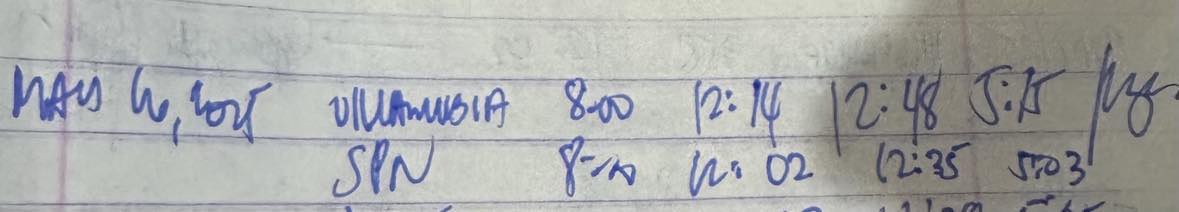 MAY 6, 2025 VILLANUEVA 8:00 12:14 12:48 5:15
SPN 8:00 12:02 12:35 5:03